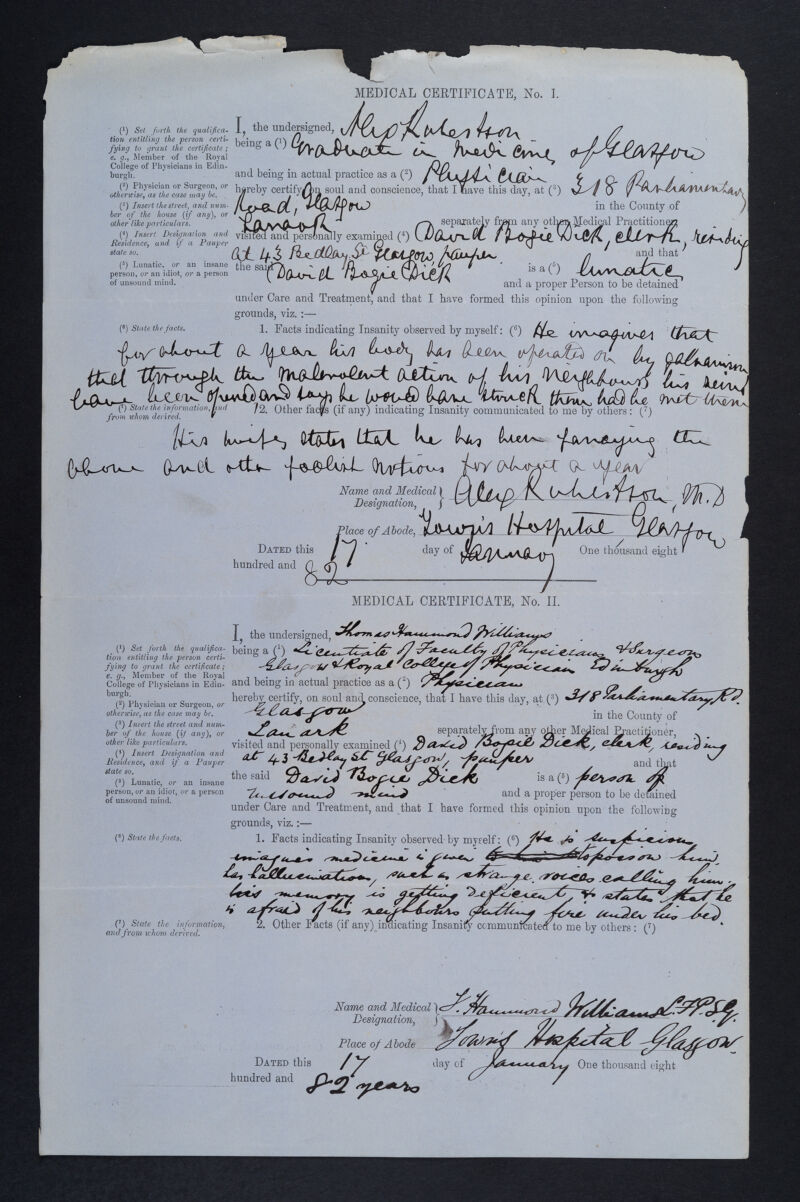 MEDICAL CERTIFICATE, No. I.
(1) Set forth the qualifica-
tion entitling the person certi-
fying to grant the certificate;
e. g., Member of the Royal
College of Physicians in Edin-
burgh.
(2) Physician or Surgeon, or
otherwise, as the case may be.
(3) Insert the street, and num-
ber of the house (if any), or
other like particulars.
(4) Insert Designation and
Residence, and if a Pauper
state so.
(5) Lunatic, or an insane
person, or an idiot, or a person
of unsound mind.
I, the undersigned, Alex Robertson
being a (1) Graduate in Medicine, of Glasgow
and being in actual practice as a (2) Physician
hereby certify, on soul and conscience, that I have this day, at (3) 318 Parliamentary
Road, Glasgow in the County of
Lanark separately from any other Medical Practitioner,
visited and personally examined (4) David Bogie Dick, clerk, residing
at 43 Bedlay St Glasgow, pauper and that
the said David Bogie Dick is a (5) lunatic
and a proper Person to be detained
under Care and Treatment, and that I have formed this opinion upon the following
grounds, viz. :—
(6) State the facts.
1. Facts indicating Insanity observed by myself: (6) He imagines that
for about a year his body has been operated on by galvanism
that through the malevolent action of his neighbours his veins
have been opened and says he would have struck them had he met them
(7) State the information, and
from whom derived.
2. Other facts (if any) indicating Insanity communicated to me by others: (7)
His wife states that he has been fancying the
above and other foolish notions for about a year
Name and Medical
Designation, } Alex Robertson, M.D
Place of Abode, Town's Hospital, Glasgow
DATED this 17 day of January One thousand eight
hundred and 82
MEDICAL CERTIFICATE, No. II.
(1) Set forth the qualifica-
tion entitling the person certi-
fying to grant the certificate;
e. g., Member of the Royal
College of Physicians in Edin-
burgh.
(2) Physician or Surgeon, or
otherwise, as the case may be.
(3) Insert the street and num-
ber of the house (if any), or
other like particulars.
(4) Insert Designation and
Residence, and if a Pauper
state so.
(5) Lunatic, or an insane
person, or an idiot, or a person
of unsound mind.
I, the undersigned, Thomas Hammond Williams
being a (1) Licentiate of Faculty of Physicians & Surgeon
Glasgow & Royal College of Physician Edinburgh
and being in actual practice as a (2) Physician
hereby certify, on soul and conscience, that I have this day, at (3) 318 Parliamentary Rd.
Glasgow in the County of
Lanark separately from any other Medical Practitioner,
visited and personally examined (4) David Bogie Dick, clerk, residing
at 43 Bedlay St Glasgow, pauper and that
the said David Bogie Dick is a (5) person of
unsound mind and a proper person to be detained
under Care and Treatment, and that I have formed this opinion upon the following
grounds, viz. :—
(6) State the facts.
1. Facts indicating Insanity observed by myself: (6) He is suspicious
imagines medicine is given to poison him.
has hallucinations, such as strange voices calling him.
his memory is getting deficient & states that he
is afraid of his neighbours putting fire under his bed.
(7) State the information,
and from whom derived.
2. Other Facts (if any) indicating Insanity communicated to me by others: (7)
Name and Medical
Designation, } T. Hammond Williams L.F.P.S.G.
Place of Abode Town's Hospital Glasgow.
DATED this 17 day of January One thousand eight
hundred and 82 years